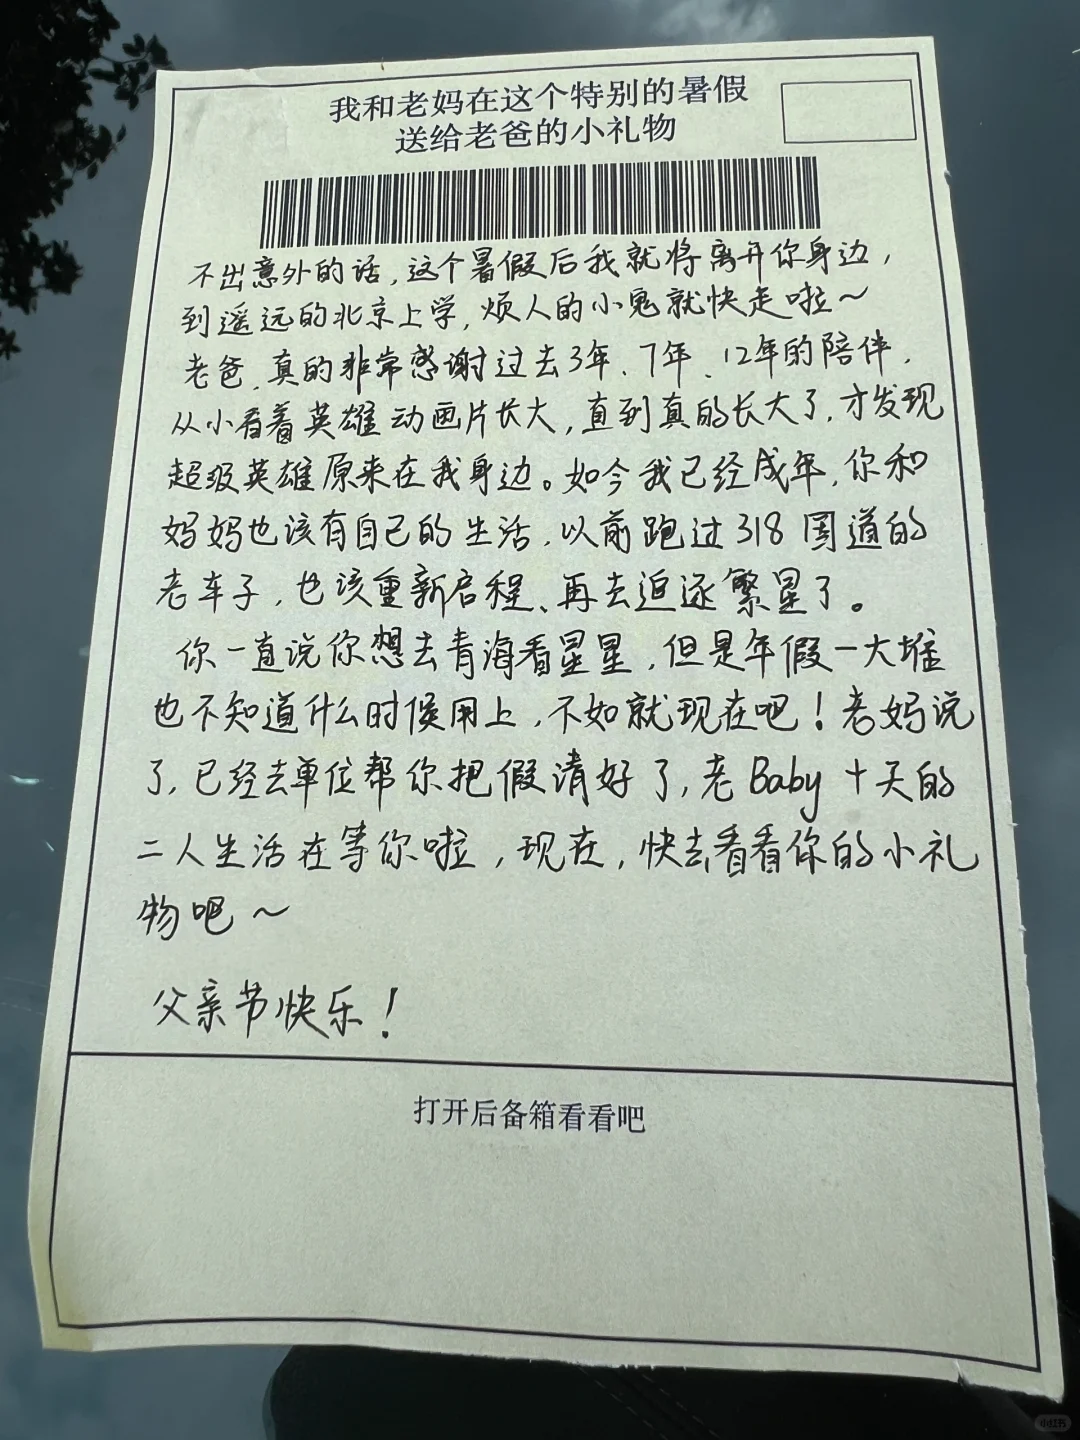 我和老妈在这个特别的暑假
送给老爸的小礼物
不出意外的话,这个暑假后我就将离开你身边,
到遥远的北京上学,烦人的小鬼就快走啦~
老爸,真的非常感谢过去3年、7年、12年的陪伴,
从小看着英雄动画片长大,直到真的长大了,才发现
超级英雄原来在我身边。如今我已经成年,你和
妈妈也该有自己的生活,以前跑过318国道的
老车子,也该重新启程、再去追逐繁星了。
你一直说你想去青海看星星,但是年假一大堆
也不知道什么时候用上,不如就现在吧!老妈说
了,已经去单位帮你把假请好了,老Baby十天的
二人生活在等你啦,现在,快去看看你的小礼
物吧~
父亲节快乐!
打开后备箱看看吧